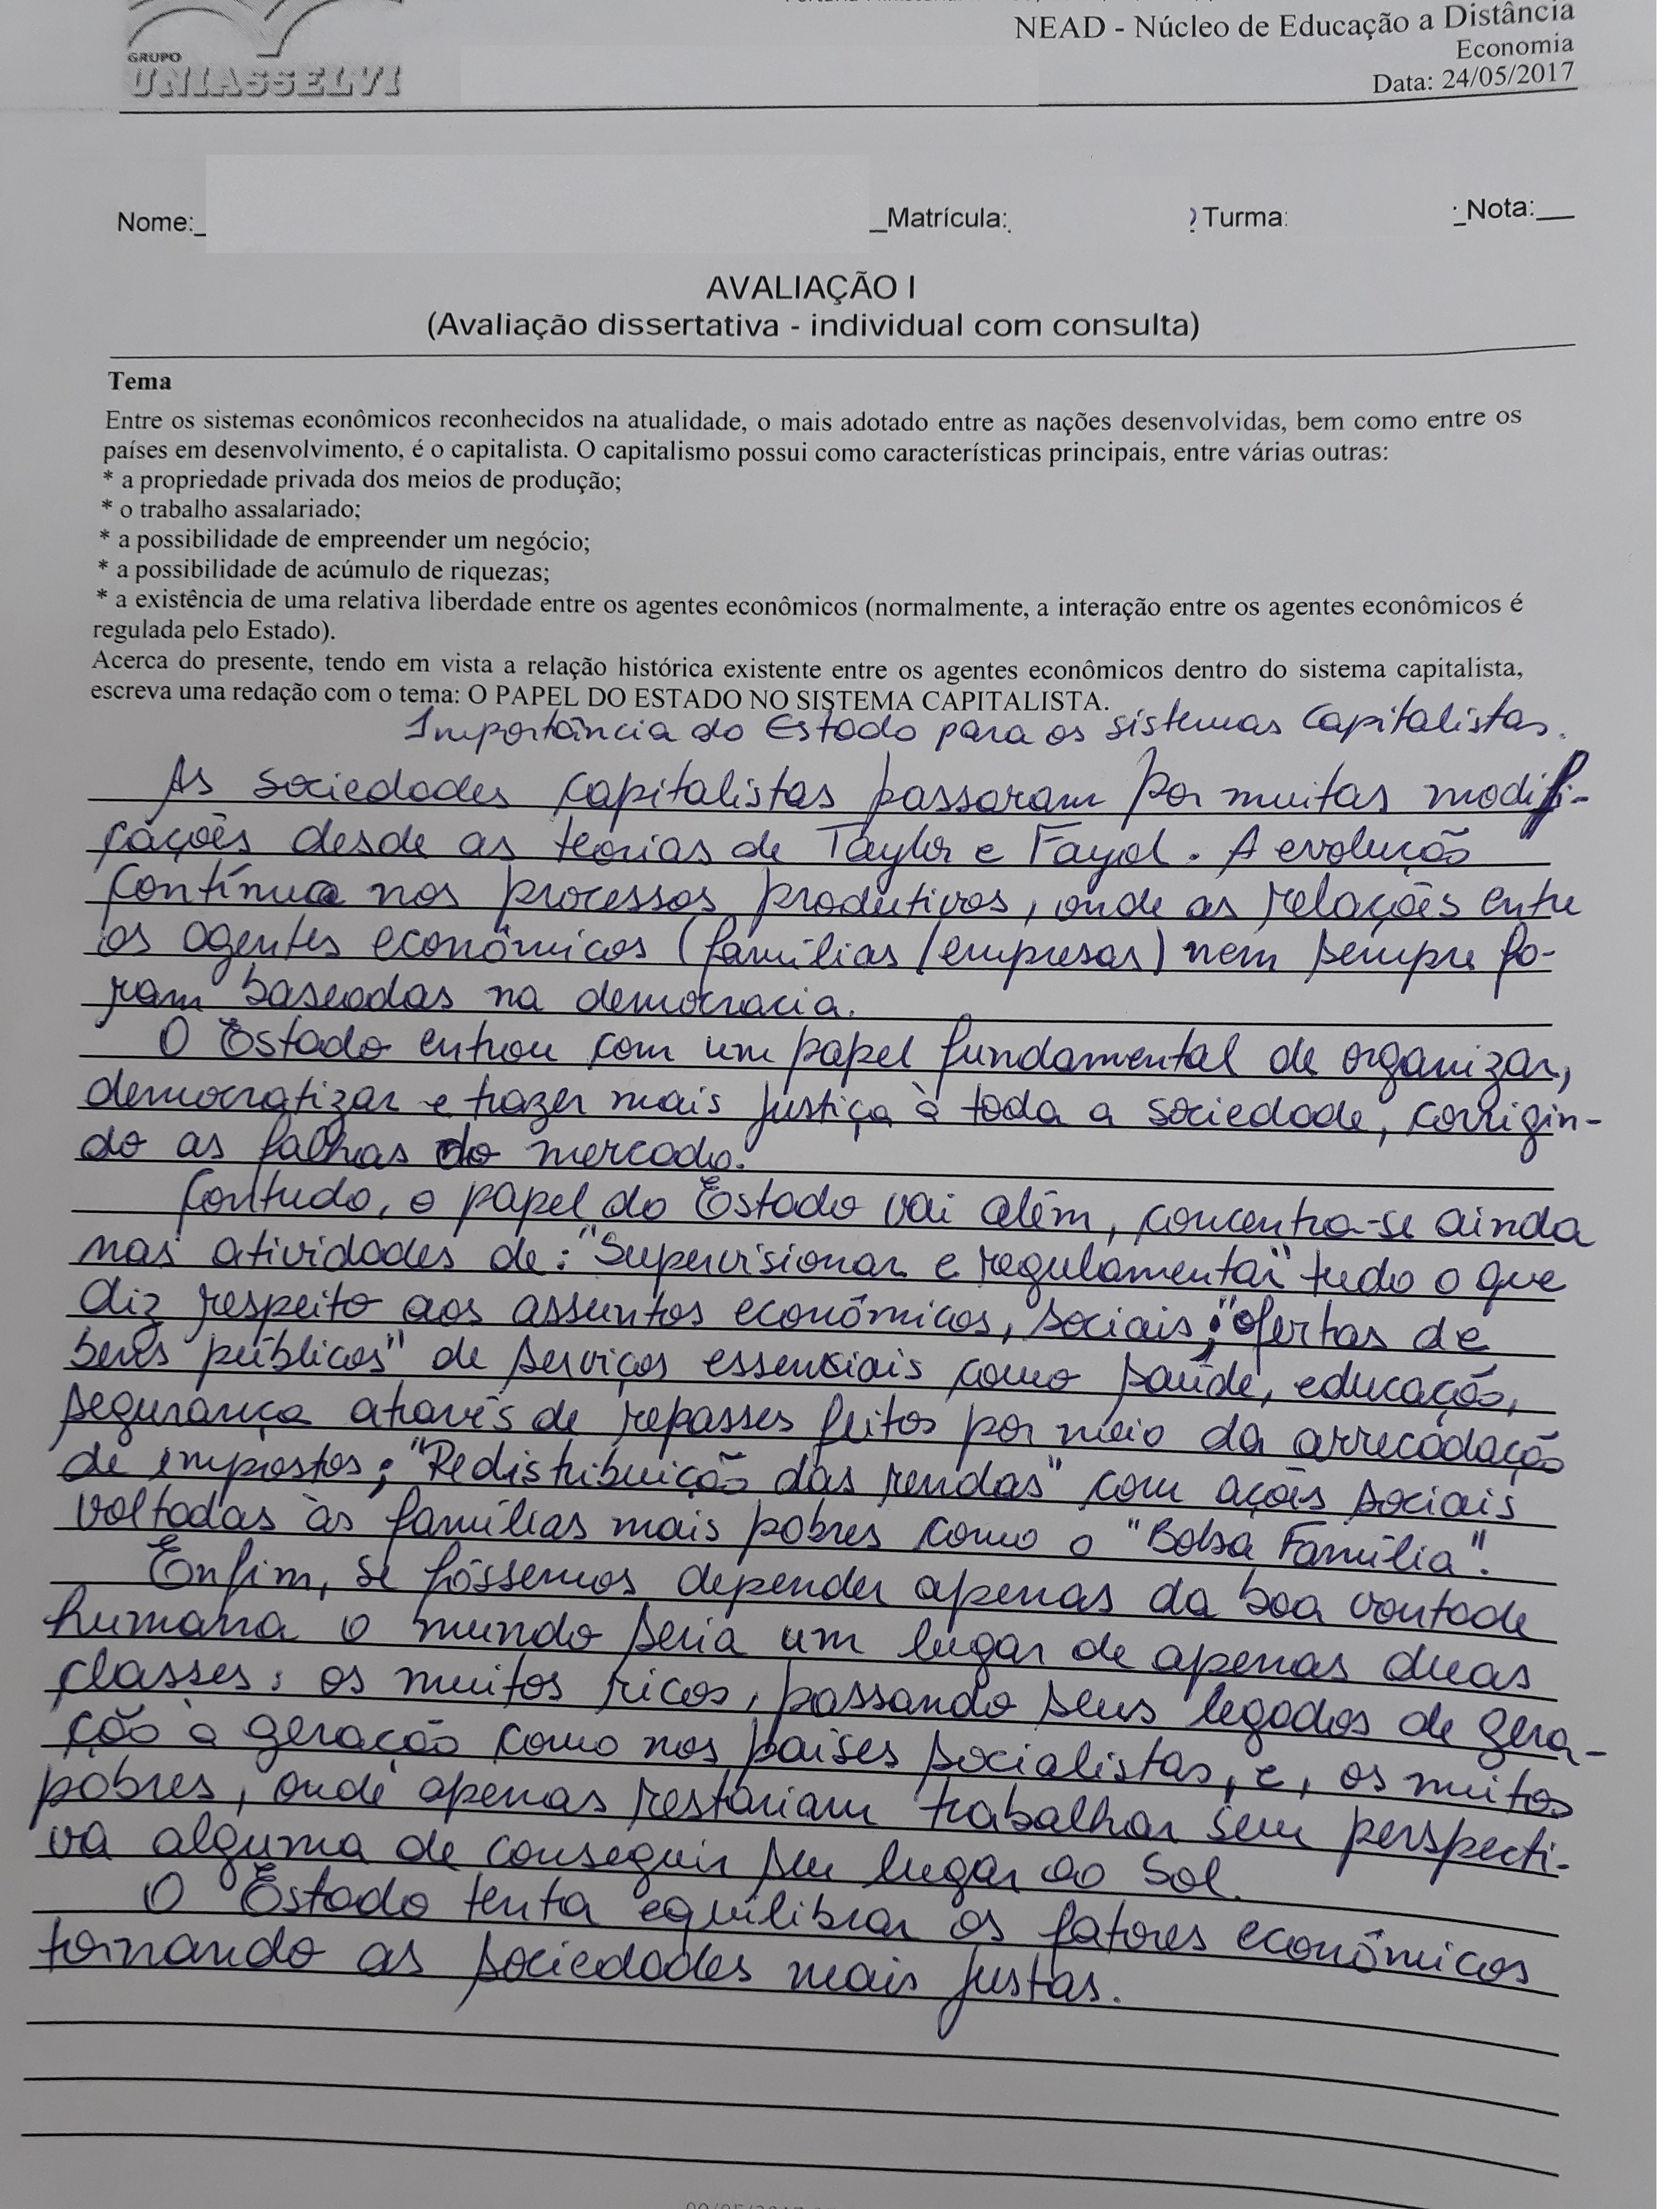 GRUPO
UNIASSELVI
NEAD - Núcleo de Educação a Distância
Economia
Data: 24/05/2017
Nome:_ _Matrícula: Turma: _Nota:__
AVALIAÇÃO I
(Avaliação dissertativa - individual com consulta)
Tema
Entre os sistemas econômicos reconhecidos na atualidade, o mais adotado entre as nações desenvolvidas, bem como entre os
países em desenvolvimento, é o capitalista. O capitalismo possui como características principais, entre várias outras:
* a propriedade privada dos meios de produção;
* o trabalho assalariado;
* a possibilidade de empreender um negócio;
* a possibilidade de acúmulo de riquezas;
* a existência de uma relativa liberdade entre os agentes econômicos (normalmente, a interação entre os agentes econômicos é
regulada pelo Estado).
Acerca do presente, tendo em vista a relação histórica existente entre os agentes econômicos dentro do sistema capitalista,
escreva uma redação com o tema: O PAPEL DO ESTADO NO SISTEMA CAPITALISTA.
Importância do Estado para os sistemas Capitalistas.
As sociedades capitalistas passaram por muitas modifi-
cações desde as teorias de Taylor e Fayol. A evolução
contínua nos processos produtivos, onde as relações entre
os agentes econômicos (famílias/empresas) nem sempre fo-
ram baseadas na democracia.
O Estado entrou com um papel fundamental de organizar,
democratizar e trazer mais justiça à toda a sociedade, corrigin-
do as falhas do mercado.
Contudo, o papel do Estado vai além, concentra-se ainda
nas atividades de: "Supervisionar e regulamentar" tudo o que
diz respeito aos assuntos econômicos, sociais; "ofertas de
bens públicos" de serviços essenciais como saúde, educação,
segurança através de repasses feitos por meio da arrecadação
de impostos; "Redistribuição das rendas" com ações sociais
voltadas às famílias mais pobres como o "Bolsa Família".
Enfim, se fôssemos depender apenas da boa vontade
humana o mundo seria um lugar de apenas duas
classes: os muitos ricos, passando seus legados de gera-
ção à geração como nos países socialistas, e, os muitos
pobres, onde apenas restariam trabalhar sem perspecti-
va alguma de conseguir seu lugar ao Sol.
O Estado tenta equilibrar os fatores econômicos
tornando as sociedades mais justas.